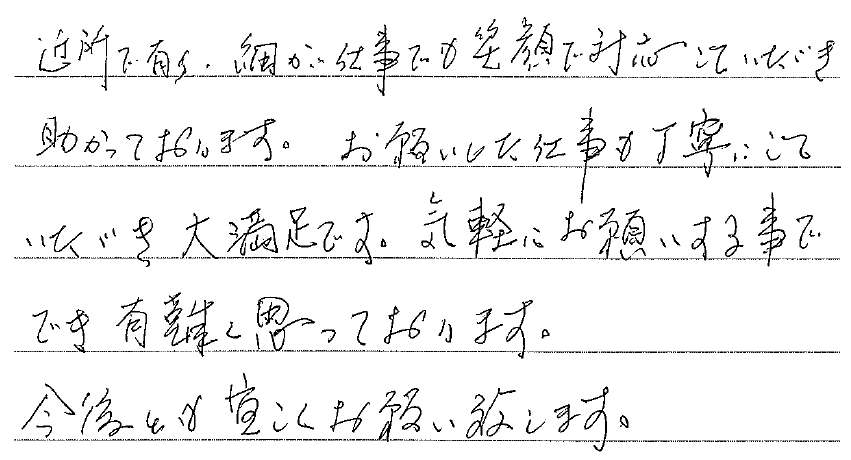 近所で有り、細かい仕事でも笑顔で対応していただき
助かっております。 お願いした仕事も丁寧にして
いただき大満足です。気軽にお願いする事で
でき有難く思っております。
今後とも宜しくお願い致します。